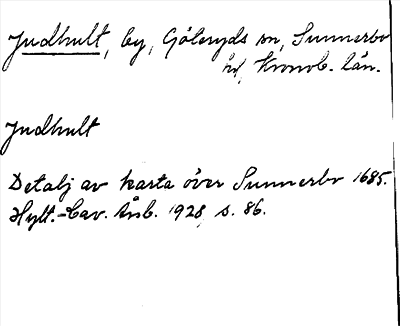 Judhult, by, Göteryds sn, Sunnerbo
hd, Kronob. län.
Judhult
Detalj av karta över Sunnerbo 1685.
Hylt.-Cav. Årsb. 1928, s. 86.